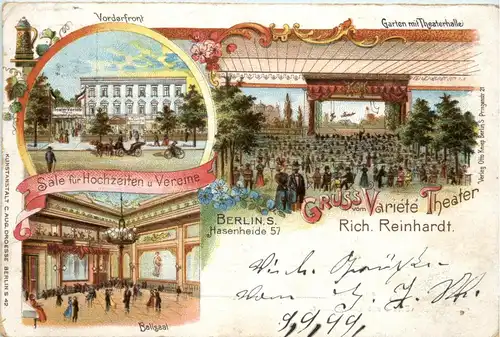 Vorderfront
Garten mit Theaterhalle
Säle für Hochzeiten u Vereine
Ballsaal
BERLIN.S.
Hasenheide 57
GRUSS vom Variété Theater
Rich. Reinhardt.
Viele Grüße
9/9 99.
KUNSTANSTALT C. AUG. DROESSE BERLIN S 42
Verlag Otto Kamp Berlin S Prinzenstr 21